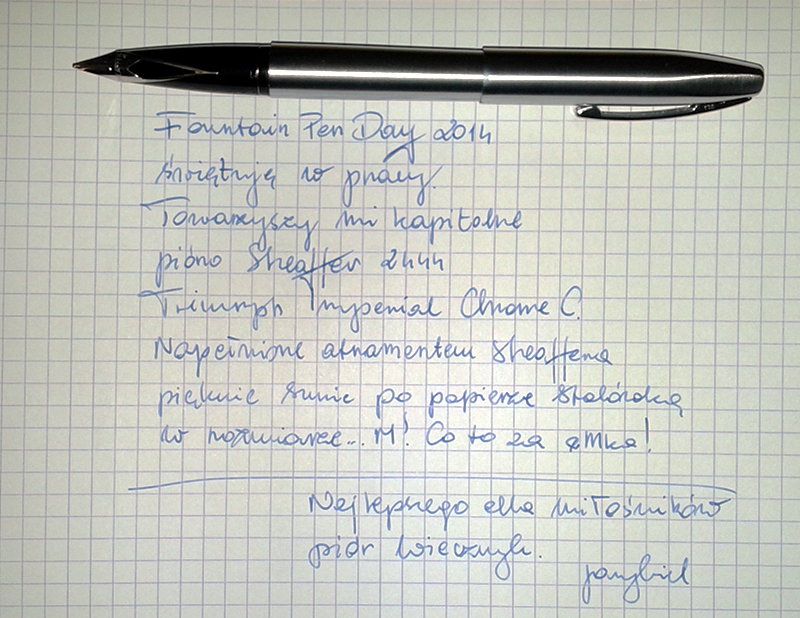 Fountain Pen Day 2014
świętuję w pracy.
Towarzyszy mi kapitalne
pióro Sheaffer 2444
Triumph Imperial Chrome C.
Napełnione atramentem Sheaffera
pięknie sunie po papierze stalówką
w rozmiarze... M! Co to za emka!
Najlepszego dla miłośników
piór wiecznych.